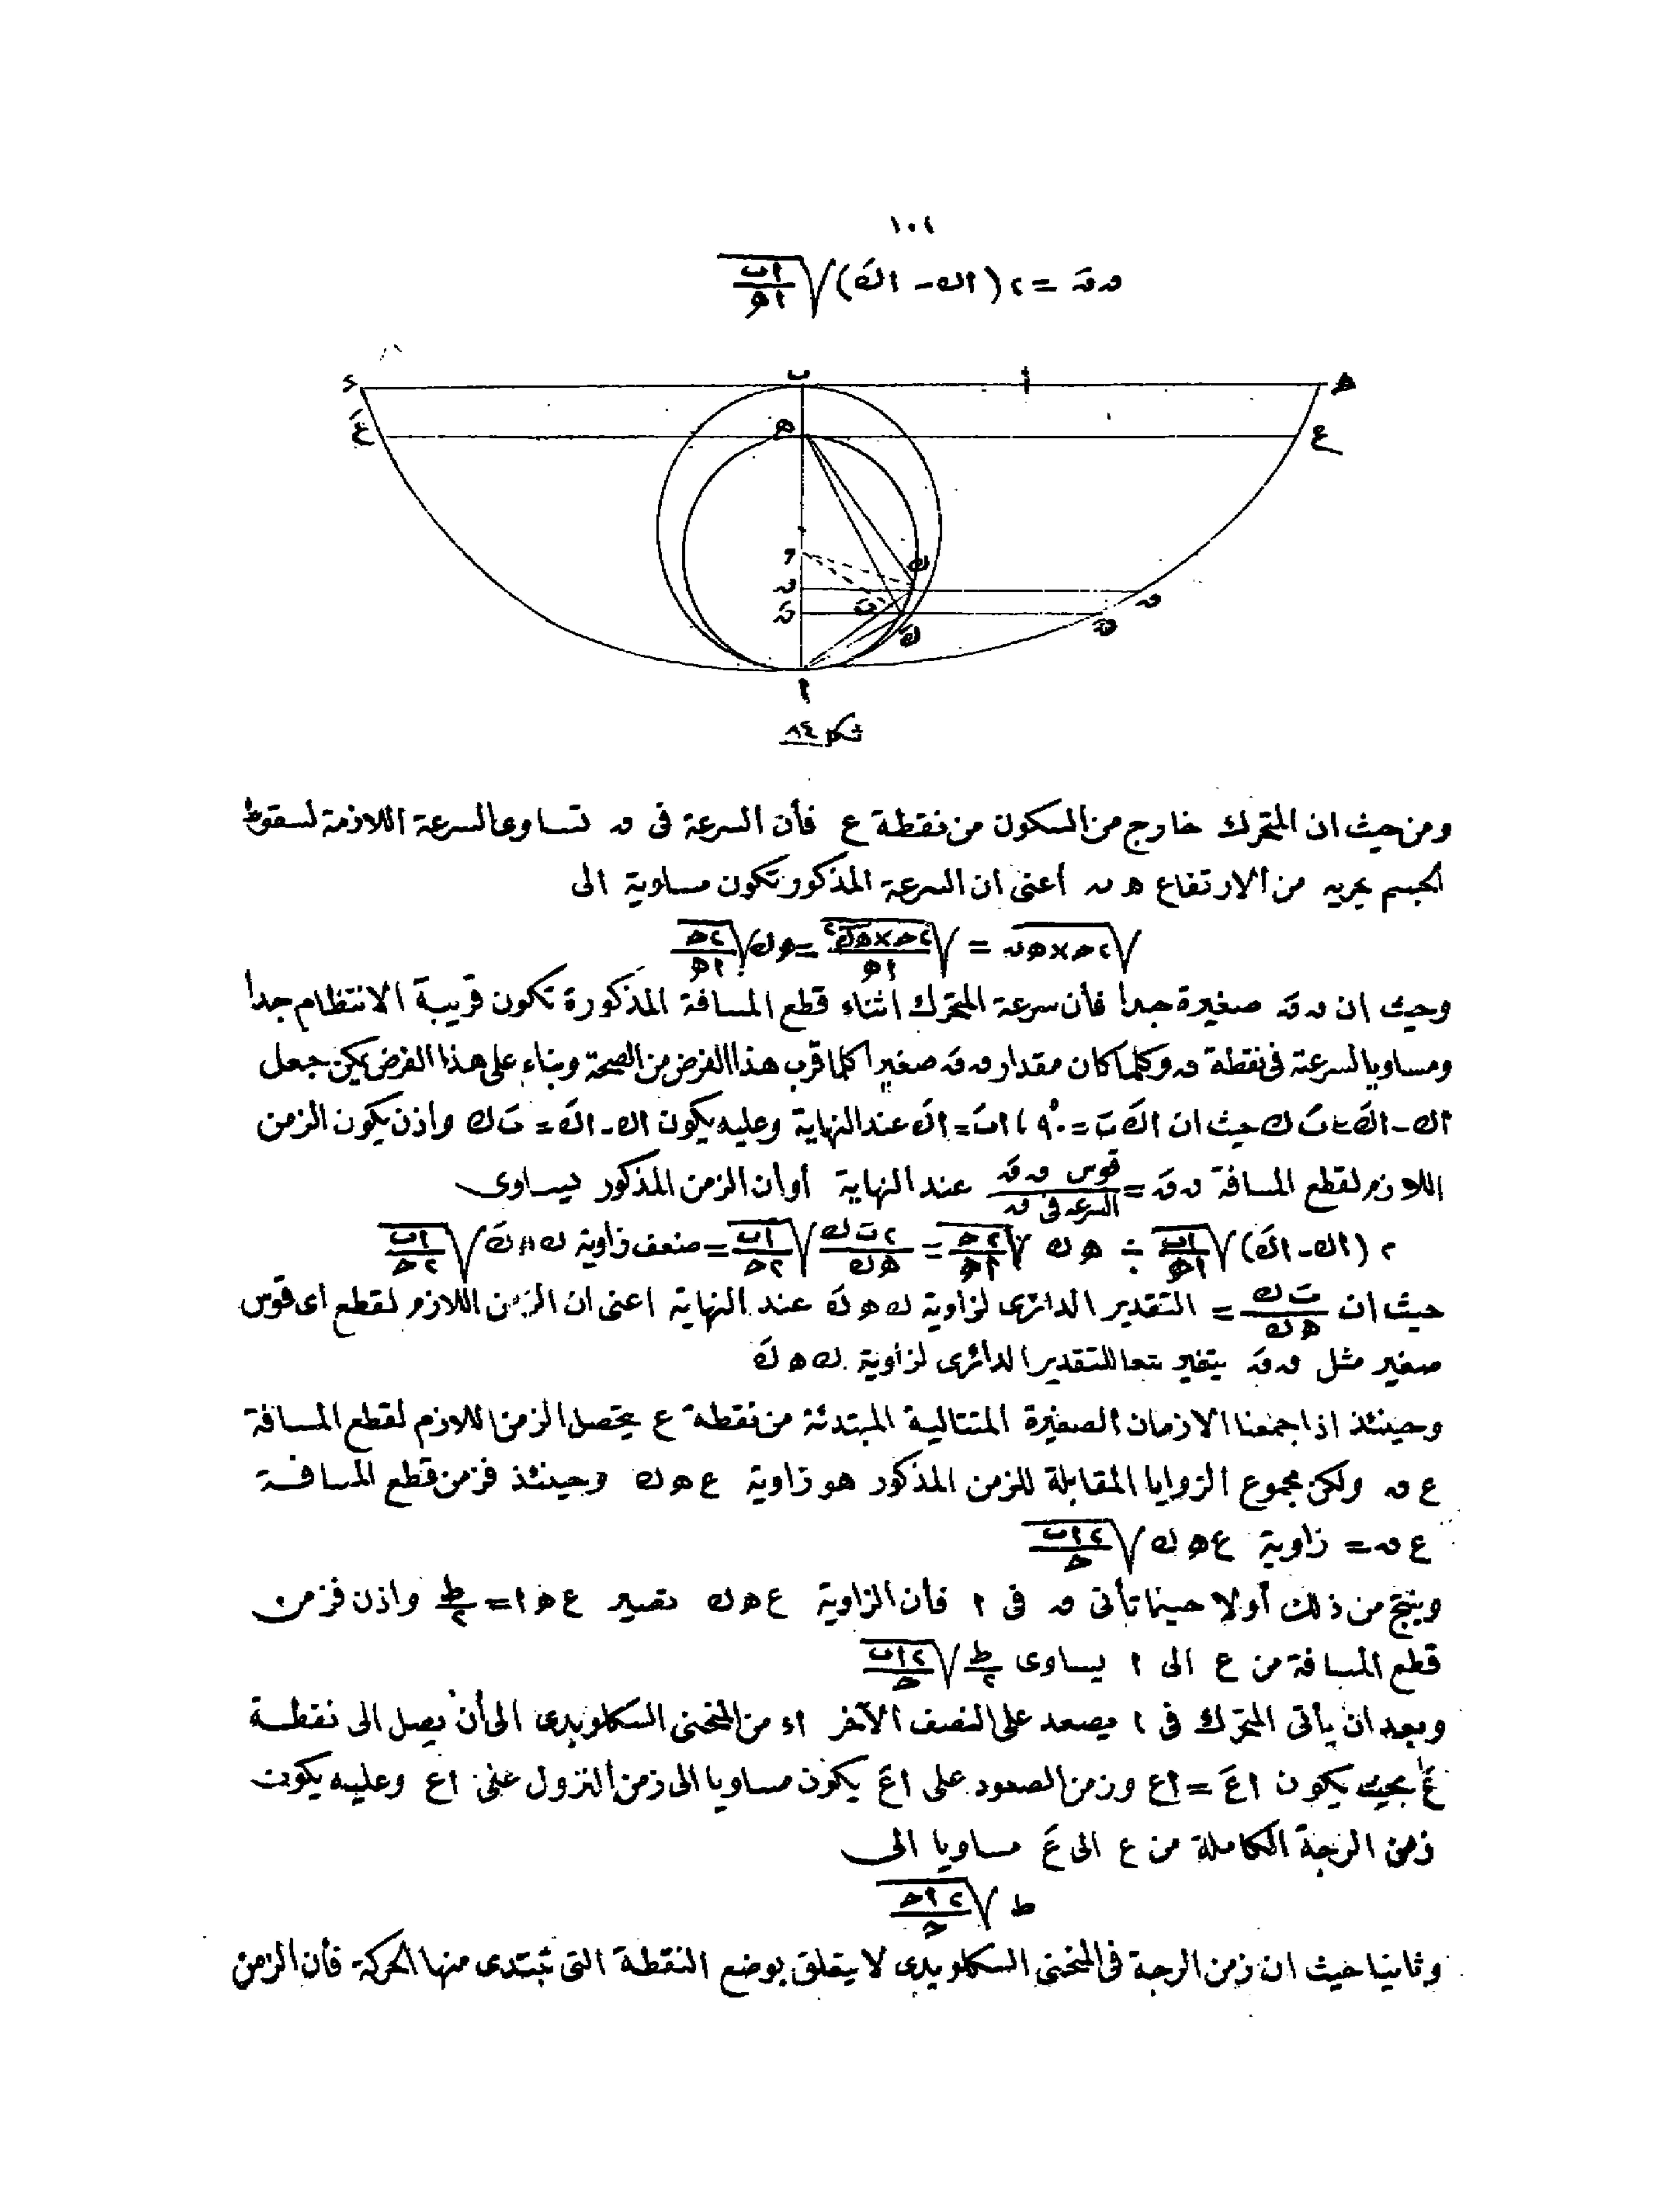 ١٠٢
ں ںَ = ٢ (اك - اكَ) √(اب/اه)
ب
ء
ا
ه
عَ
ه
ع
م
ك
ں
ںَ
كَ
ا
شكل ٨٤
ومن حيث ان المتحرك خارج من السكون من نقطة ع فأن السرعة فى ں تساوى السرعة اللازمة لسقوط
الجسم بحريه من الارتفاع ه ں أعنى ان السرعة المذكور تكون مساوية الى
√(٢حـ×هں) = √(٢حـ×هك٢/اه) = هك √(٢حـ/اه)
وحيث ان ں ںَ صغيرة جدا فأن سرعة المتحرك اثناء قطع المسافة المذكورة تكون قريبة الانتظام جدا
ومساويا لسرعته فى نقطة ں وكلما كان مقدار ں ںَ صغيرا كلما قرب هذا الفرض من الصحة وبناء على هذا الفرض يمكن جعل
اك - اكَ = تَ ك حيث ان اكَ تَ = ٩٠° ، اتَ = اكَ عند النهاية وعليه يكون اك - اكَ = تَ ك واذن يكون الزمن
اللازم لقطع المسافة ں ںَ = قوس ں ںَ / السرعه فى ں عند النهاية أو أن الزمن المذكور يساوى
٢ (اك - اكَ) √(اب/اه) ÷ هك √(٢حـ/اه) = ٢تَ ك/هك √(اب/٢حـ) = ضعف زاوية ك ه كَ √(اب/٢حـ)
حيث ان تَ ك/هك = التقدير الدائرى لزاوية ك ه كَ عند النهاية اعنى ان الزمن اللازم لقطع اى قوس
صغير مثل ں ںَ يتغير تبعا للتقدير الدائرى لزاوية ك ه كَ
وحينئذ اذا جمعنا الازمان الصغيرة المتتالية المبتدئة من نقطة ع يتحصل الزمن اللازم لقطع المسافة
ع ں ولكن مجموع الزوايا المقابلة للزمن المذكور هو زاوية ع ه ك وحينئذ فزمن قطع المسافة
ع ں = زاوية ع ه ك √(٢اب/حـ)
وينتج من ذلك أولا حينما تأتى ں فى ا فأن الزاوية ع ه ك تصير ع ه ا = ط/٢ واذن فزمن
قطع المسافة من ع الى ا يساوى ط/٢ √(٢اب/حـ)
وبعد ان يأتى المتحرك فى ا يصعد على النصف الآخر اء من المنحنى السكلويدى الى أن يصل الى نقطة
عَ بحيث يكون اعَ = اع وزمن الصعود على اعَ يكون مساويا الى زمن النزول على اع وعليه يكون
زمن الرجة الكاملة من ع الى عَ مساويا الى
ط √(٢اب/حـ)
وثانيا حيث ان زمن الرجة فى المنحنى السكلويدى لا يتعلق بوضع النقطة التى تبتدى منها الحركة فأن الزمن